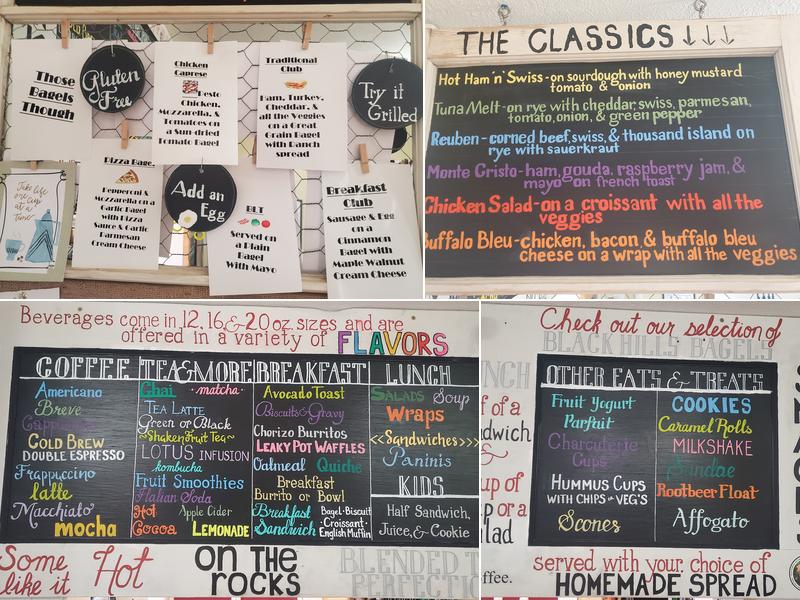 Those
Bagels
Though
Gluten
Free
Chicken
Caprese
Pesto
Chicken,
Mozzarella, &
Tomatoes on
a Sun-dried
Tomato Bagel
Traditional
Club
Ham, Turkey,
Cheddar, &
all the Veggies
on a Great
Grain Bagel
with Ranch
spread
Try it
Grilled
Take life
one cup
at a
time
Pizza Bagel
Pepperoni &
Mozzarella on a
Garlic Bagel
with Pizza
Sauce & Garlic
Parmesan
Cream Cheese
Add an
Egg
BLT
Served on
a Plain
Bagel
With Mayo
Breakfast
Club
Sausage & Egg
on a
Cinnamon
Bagel with
Maple Walnut
Cream Cheese
THE CLASSICS ↓↓↓
Hot Ham 'n' Swiss-on sourdough with honey mustard
tomato & onion
Tuna Melt-on rye with cheddar, swiss, parmesan,
tomato, onion, & green pepper
Reuben-corned beef, swiss, & thousand island on
rye with sauerkraut
Monte Cristo-ham, gouda, raspberry jam, &
mayo on french toast
Chicken Salad-on a croissant with all the
veggies
Buffalo Bleu-chicken, bacon, & buffalo bleu
cheese on a wrap with all the veggies
Beverages come in 12, 16, & 20 oz. sizes and are
offered in a variety of FLAVORS
COFFEE
Americano
Breve
Cappuccino
COLD BREW
DOUBLE ESPRESSO
Frappuccino
latte
Macchiato
mocha
TEA & MORE
Chai ·matcha·
TEA LATTE
Green or Black
~Shaken Fruit Tea~
LOTUS INFUSION
kombucha
Fruit Smoothies
Italian Soda
Hot Apple Cider
Cocoa LEMONADE
BREAKFAST
Avocado Toast
Biscuits & Gravy
Chorizo Burritos
LEAKY POT WAFFLES
Oatmeal Quiche
Breakfast
Burrito or Bowl
Breakfast Bagel·Biscuit
Sandwich ·Croissant·
English Muffin
LUNCH
SALADS Soup
Wraps
<<Sandwiches>>>
Paninis
KIDS
Half Sandwich,
Juice, & Cookie
Some
like it Hot
ON THE
ROCKS
BLENDED T
PERFECTIO
Check out our selection of
BLACK HILLS BAGELS
NCH
f of a
dwich
&
up of
p or a
lad
ffee.
OTHER EATS & TREATS
Fruit Yogurt
Parfait
Charcuterie
Cups
HUMMUS CUPS
WITH CHIPS or VEG'S
Scones
COOKIES
Caramel Rolls
MILKSHAKE
Sundae
Rootbeer Float
Affogato
served with your choice of
HOMEMADE SPREAD